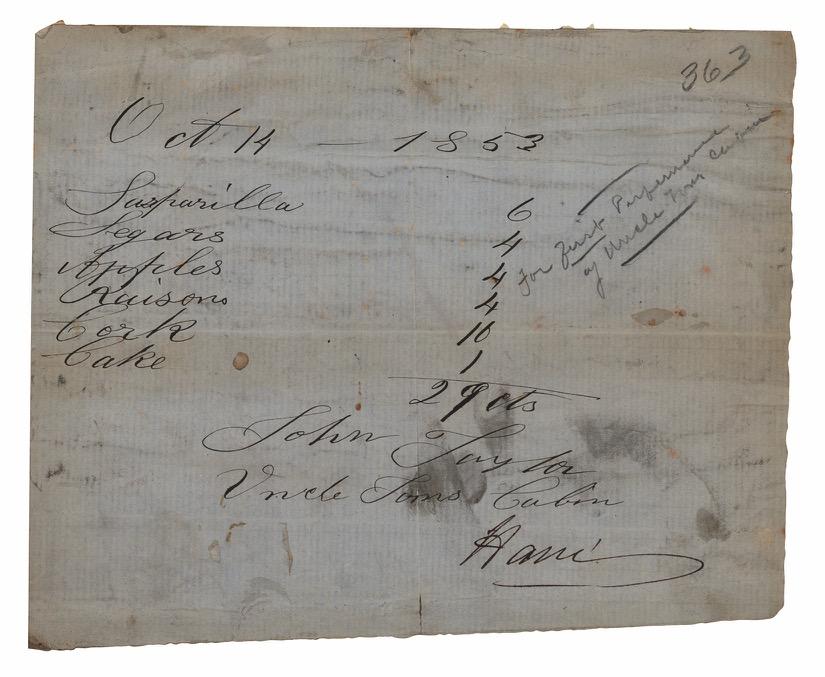 363
Oct 14 — 1853
For First Performance
of Uncle Toms Cabin
Sasparilla 6
Segars 4
Apples 4
Raisons 4
Cork 10
Cake 1
29 cts
John Taylor
Uncle Toms Cabin